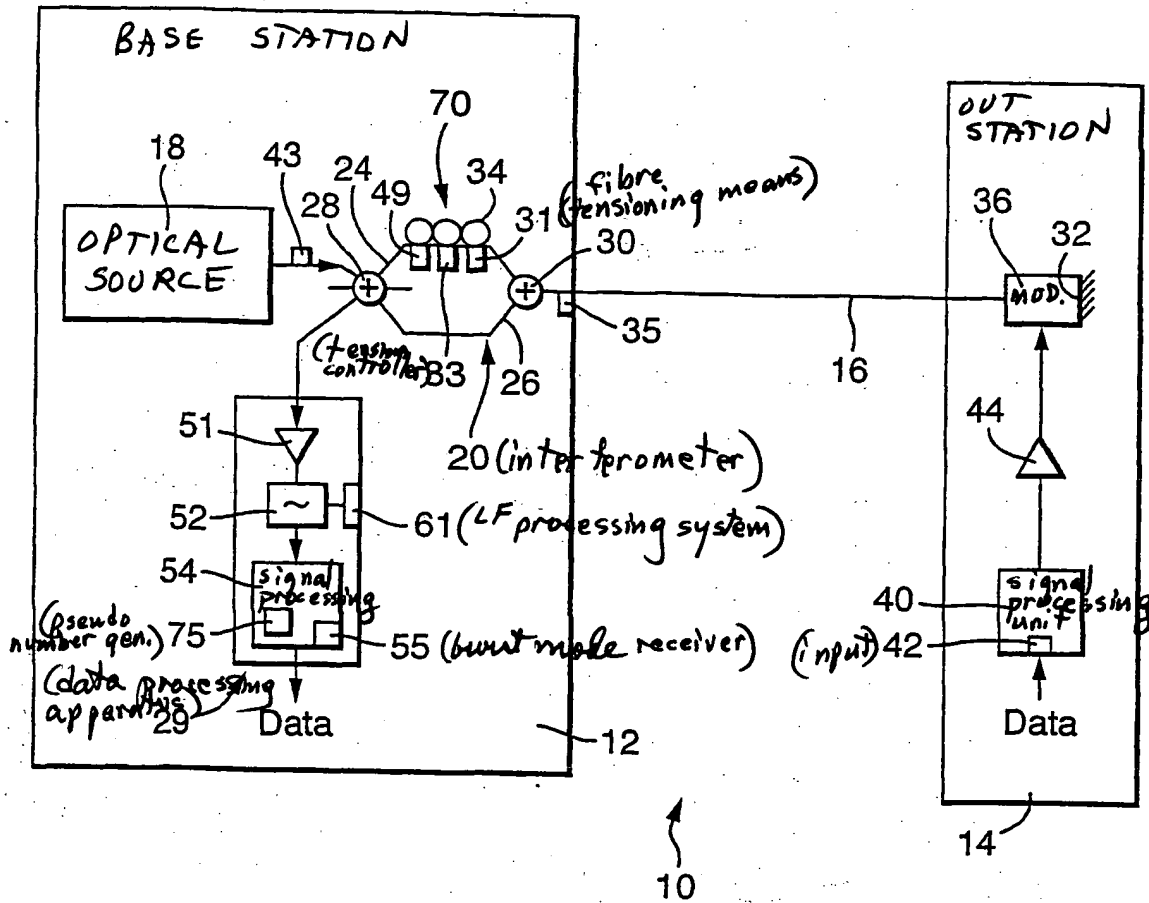 BASE STATION
70
18
43
24
49
28
34
31
(fibre
tensioning means)
30
OPTICAL
SOURCE
35
26
16
(tension
controller)
33
20 (interferometer)
51
52
61 (LF processing system)
54
signal
processing
(pseudo
number gen.)
75
55 (burst mode receiver)
(data processing
apparatus)
29
Data
12
10
OUT
STATION
36
32
MOD.
44
40
signal
processing
unit
(input)
42
Data
14